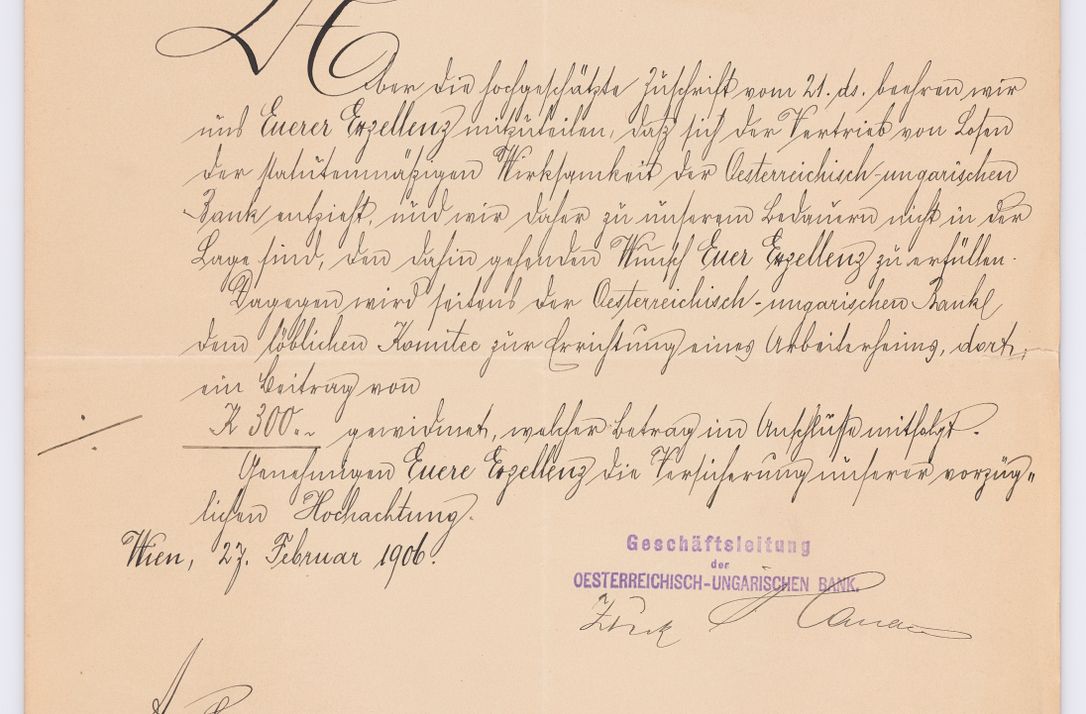 Über die hochgeschätzte Zuschrift vom 21. ds. beehren wir
uns Euerer Exzellenz mitzuteilen, daß sich der Vertrieb von Losen
der statutenmäßigen Wirksamkeit der Oesterreichisch-ungarischen
Bank entzieht, und wir daher zu unserem Bedauern nicht in der
Lage sind, den dahin gehenden Wunsch Euer Exzellenz zu erfüllen.
Dagegen wird seitens der Oesterreichisch-ungarischen Bank
dem löblichen Komitee zur Errichtung eines Arbeiterheims, dort,
ein Beitrag von
K 300.-. gewidmet, welcher Betrag im Anschlusse mitfolgt.
Genehmigen Euere Exzellenz die Versicherung unserer vorzüg-
lichen Hochachtung.
Wien, 27. Februar 1906.
Geschäftsleitung
der
OESTERREICHISCH-UNGARISCHEN BANK.